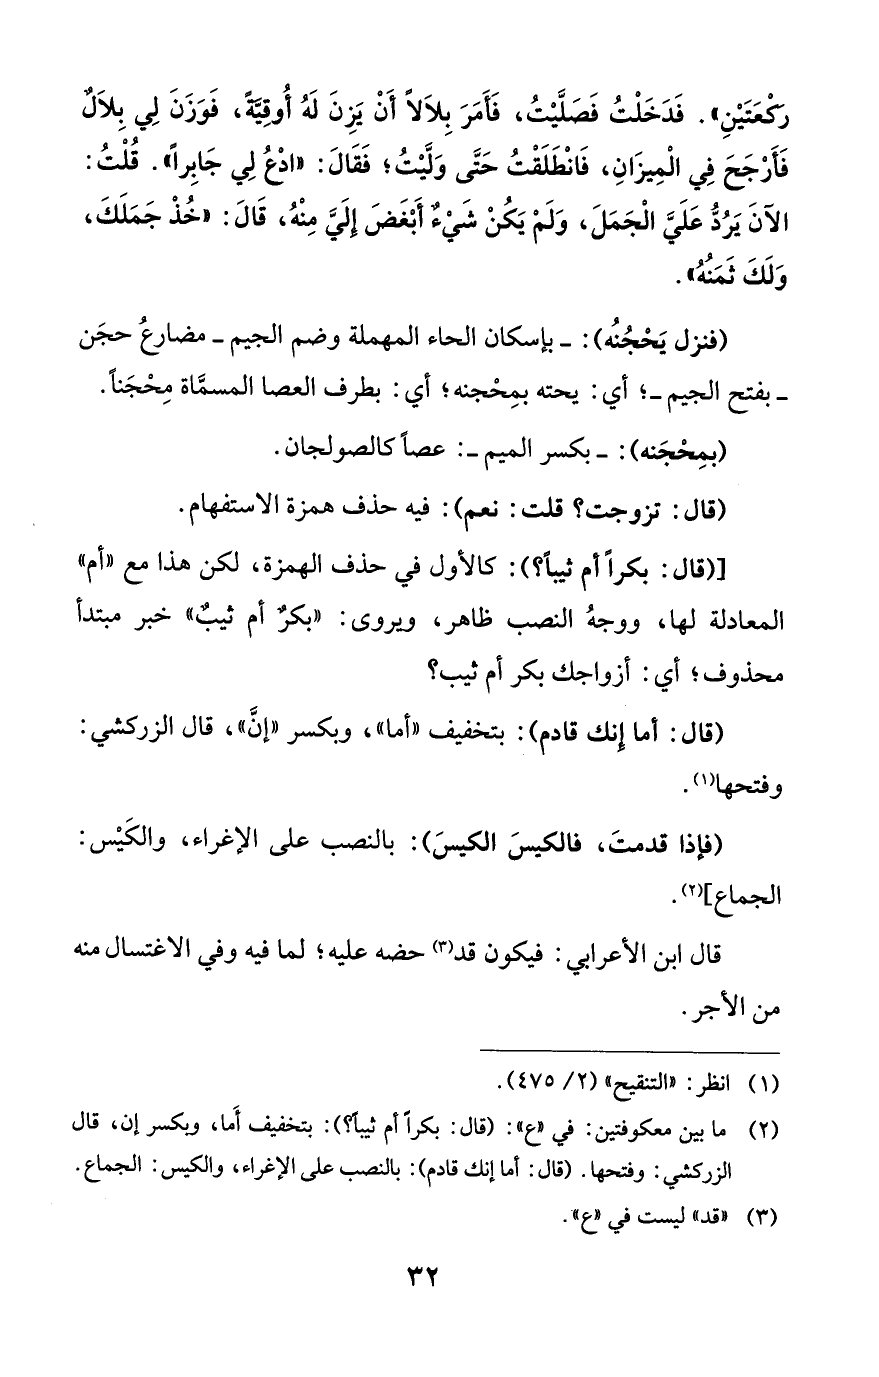 رَكْعَتَيْنِ». فَدَخَلْتُ فَصَلَّيْتُ، فَأَمَرَ بِلاَلاً أَنْ يَزِنَ لَهُ أُوقِيَّةً، فَوَزَنَ لِي بِلاَلٌ
فَأَرْجَحَ فِي الْمِيزَانِ، فَانْطَلَقْتُ حَتَّى وَلَّيْتُ؛ فَقَالَ: «ادْعُ لِي جَابِراً». قُلْتُ:
الآنَ يَرُدُّ عَلَيَّ الْجَمَلَ، وَلَمْ يَكُنْ شَيْءٌ أَبْغَضَ إِلَيَّ مِنْهُ، قَالَ: «خُذْ جَمَلَكَ،
وَلَكَ ثَمَنُهُ».
(فنزل يَحْجُنُه): ـ بإسكان الحاء المهملة وضم الجيم ـ مضارعُ حجَن
ـ بفتح الجيم ـ؛ أي: يحته بمِحْجنه؛ أي: بطرف العصا المسمَّاة مِحْجَناً.
(بمِحْجَنه): ـ بكسر الميم ـ: عصاً كالصولجان.
(قال: تزوجت؟ قلت: نعم): فيه حذف همزة الاستفهام.
[(قال: بكراً أم ثيباً؟): كالأول في حذف الهمزة، لكن هذا مع «أم»
المعادلة لها، ووجهُ النصب ظاهر، ويروى: «بكرٌ أم ثيبٌ» خبر مبتدأ
محذوف؛ أي: أزواجك بكر أم ثيب؟
(قال: أما إنك قادم): بتخفيف «أما»، وبكسر «إنَّ»، قال الزركشي:
وفتحها(١).
(فإذا قدمتَ، فالكيسَ الكيسَ): بالنصب على الإغراء، والكَيْس:
الجماع](٢).
قال ابن الأعرابي: فيكون قد(٣) حضه عليه؛ لما فيه وفي الاغتسال منه
من الأجر.
(١) انظر: «التنقيح» (٢/ ٤٧٥).
(٢) ما بين معكوفتين: في «ع»: (قال: بكراً أم ثيباً؟): بتخفيف أَما، وبكسر إن، قال
الزركشي: وفتحها. (قال: أما إنك قادم): بالنصب على الإغراء، والكيس: الجماع.
(٣) «قد» ليست في «ع».
٣٢